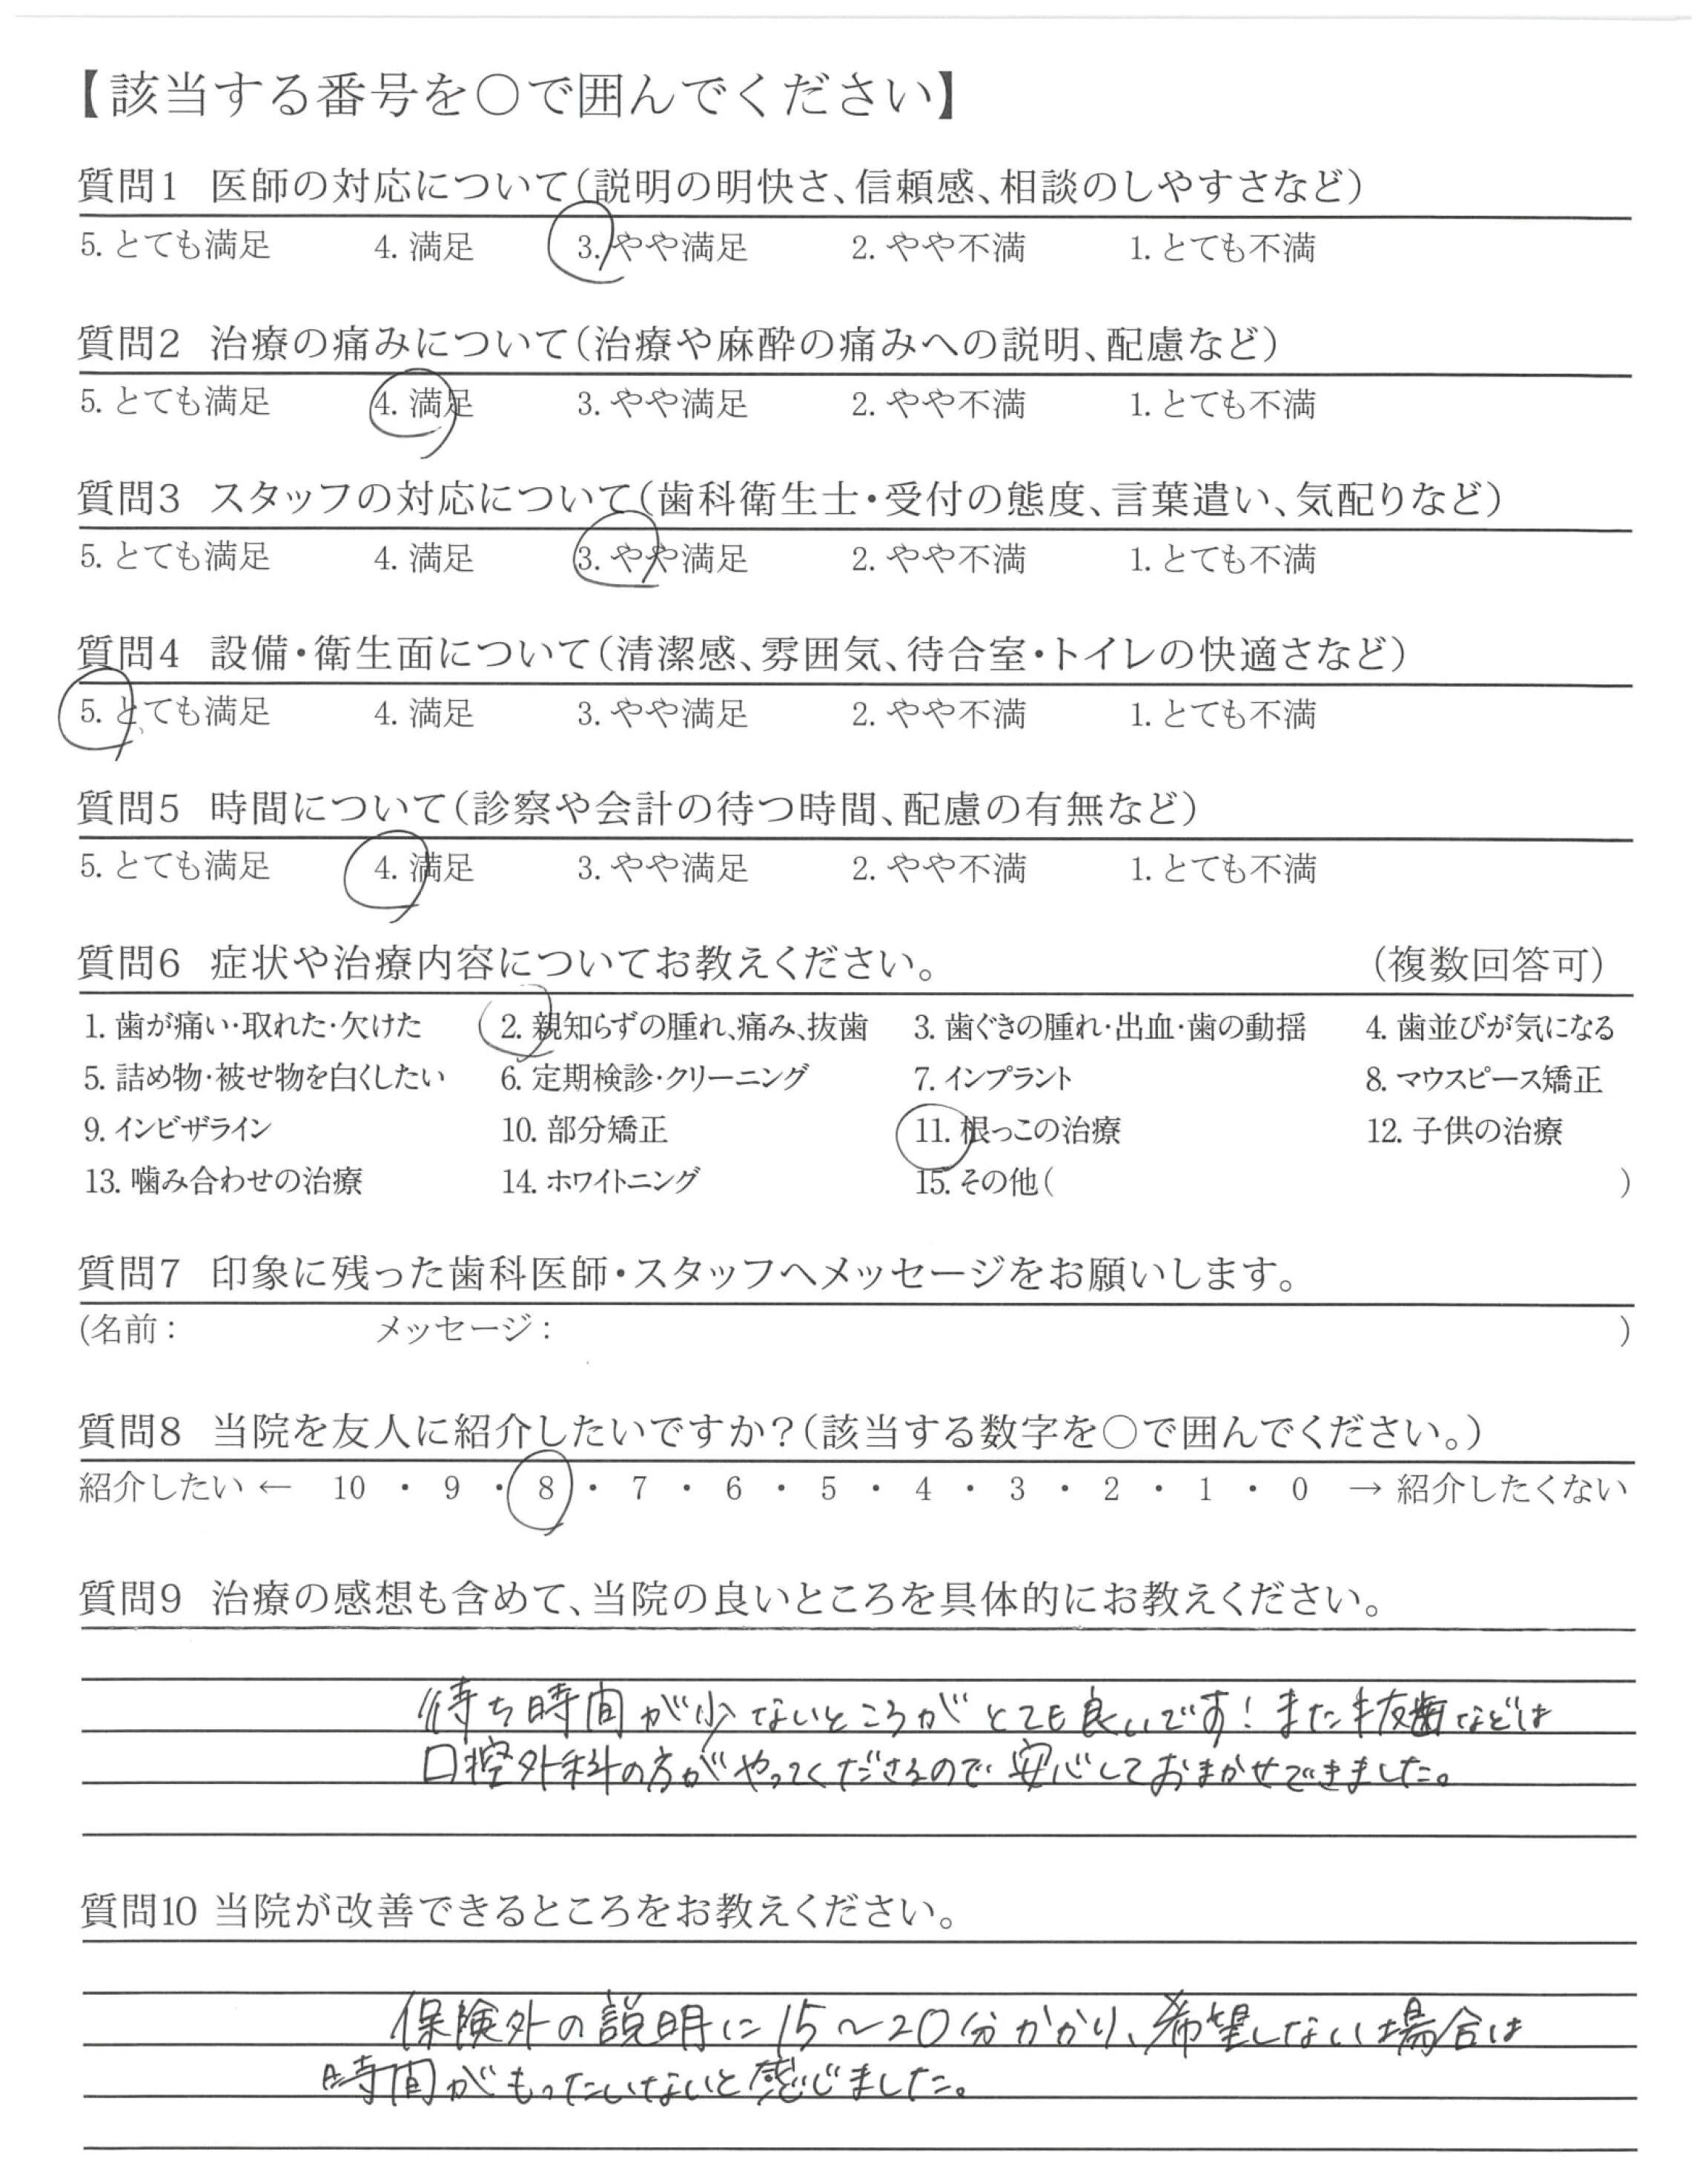 【該当する番号を○で囲んでください】
質問1 医師の対応について(説明の明快さ、信頼感、相談のしやすさなど)
5. とても満足 4. 満足 3. やや満足 2. やや不満 1. とても不満
質問2 治療の痛みについて(治療や麻酔の痛みへの説明、配慮など)
5. とても満足 4. 満足 3. やや満足 2. やや不満 1. とても不満
質問3 スタッフの対応について(歯科衛生士・受付の態度、言葉遣い、気配りなど)
5. とても満足 4. 満足 3. やや満足 2. やや不満 1. とても不満
質問4 設備・衛生面について(清潔感、雰囲気、待合室・トイレの快適さなど)
5. とても満足 4. 満足 3. やや満足 2. やや不満 1. とても不満
質問5 時間について(診察や会計の待つ時間、配慮の有無など)
5. とても満足 4. 満足 3. やや満足 2. やや不満 1. とても不満
質問6 症状や治療内容についてお教えください。 (複数回答可)
1. 歯が痛い・取れた・欠けた 2. 親知らずの腫れ、痛み、抜歯 3. 歯ぐきの腫れ・出血・歯の動揺 4. 歯並びが気になる
5. 詰め物・被せ物を白くしたい 6. 定期検診・クリーニング 7. インプラント 8. マウスピース矯正
9. インビザライン 10. 部分矯正 11. 根っこの治療 12. 子供の治療
13. 噛み合わせの治療 14. ホワイトニング 15. その他( )
質問7 印象に残った歯科医師・スタッフへメッセージをお願いします。
(名前: メッセージ: )
質問8 当院を友人に紹介したいですか?(該当する数字を○で囲んでください。)
紹介したい ← 10 ・ 9 ・ 8 ・ 7 ・ 6 ・ 5 ・ 4 ・ 3 ・ 2 ・ 1 ・ 0 → 紹介したくない
質問9 治療の感想も含めて、当院の良いところを具体的にお教えください。
待ち時間が少ないところがとても良いです!また抜歯などは
口腔外科の方がやってくださるので安心しておまかせできました。
質問10 当院が改善できるところをお教えください。
保険外の説明に15~20分かかり、希望しない場合は
時間がもったいないと感じました。